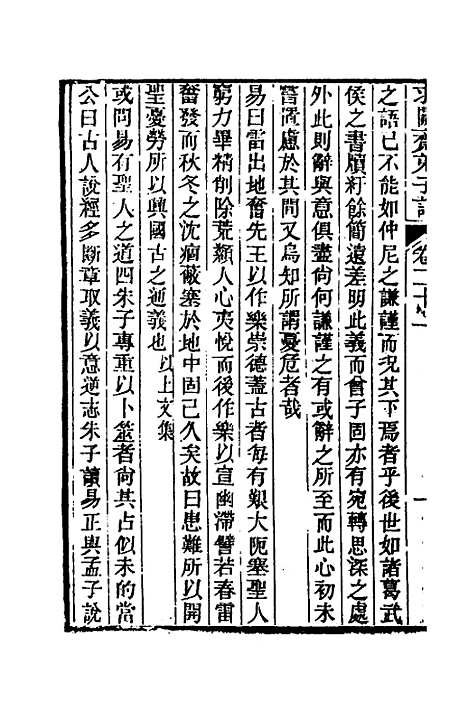 求闕齋弟子記　卷二十
之語已不能如仲尼之謙謹而況其下焉者乎後世如諸葛武
侯之書牘紆餘簡遠差明此義而曾子固亦有宛轉思深之處
外此則辭與意俱盡尚何謙謹之有或辭之所至而此心初未
嘗置慮於其間又烏知所謂憂危者哉
易曰雷出地奮先王以作樂崇德蓋古者每有艱大阨塞聖人
窮力畢精削除荒纇人心夷悅而後作樂以宣幽滯譬若春雷
奮發而秋冬之沈痼蔽塞於地中固已久矣故曰患難所以開
聖憂勞所以興國古之通義也以上文集
或問易有聖人之道四朱子專重以卜筮者尚其占似未的當
公曰古人說經多斷章取義以意逆志朱子讀易正與孟子說